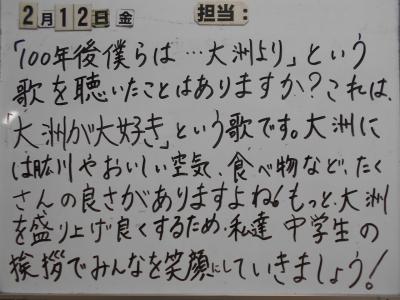 2月12日金 担当:
「100年後僕らは…大洲より」という
歌を聴いたことはありますか?これは、
「大洲が大好き」という歌です。大洲に
は肱川やおいしい空気、食べ物など、たく
さんの良さがありますよね。もっと、大洲
を盛り上げ良くするため、私達 中学生の
挨拶でみんなを笑顔にしていきましょう!